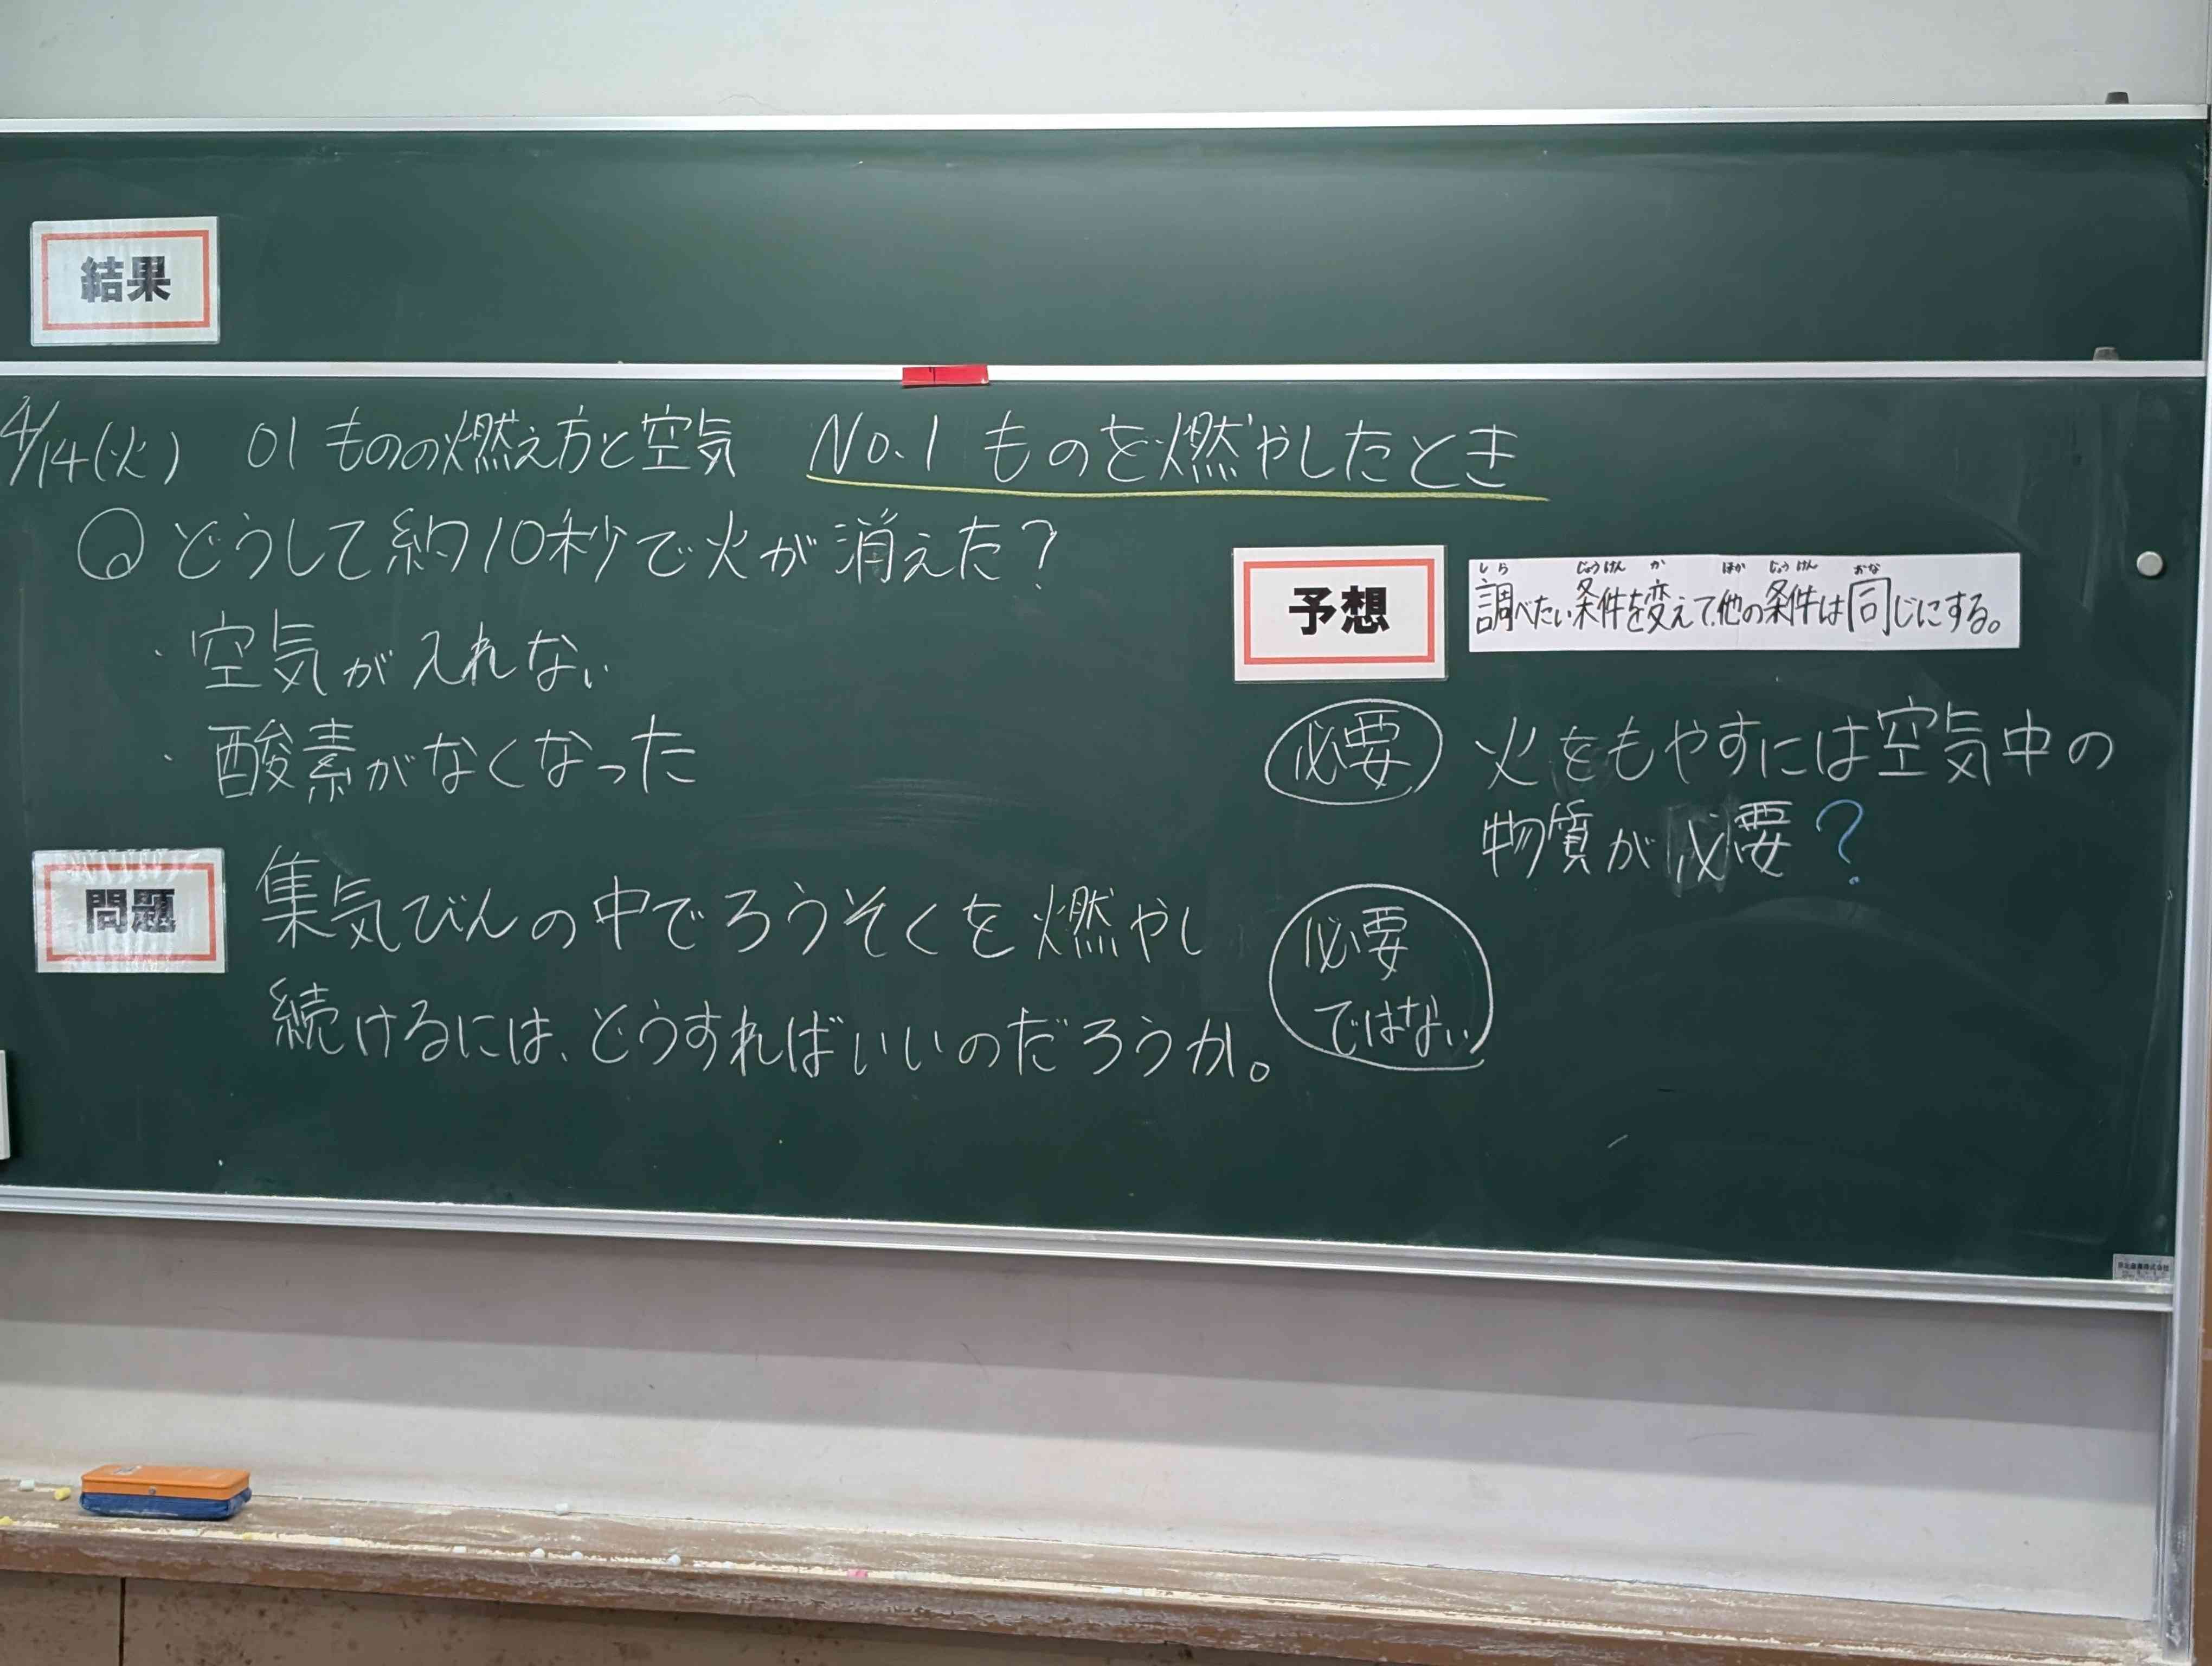 結果
4/14(火) 01 ものの燃え方と空気 No.1 ものを燃やしたとき
Q どうして約10秒で火が消えた?
・空気が入れない
・酸素がなくなった
問題
集気びんの中でろうそくを燃やし
続けるには、どうすればいいのだろうか。
予想
しら じょうけん か ほか じょうけん おな
調べたい条件を変えて、他の条件は同じにする。
必要 火をもやすには空気中の
物質が必要?
必要
ではない